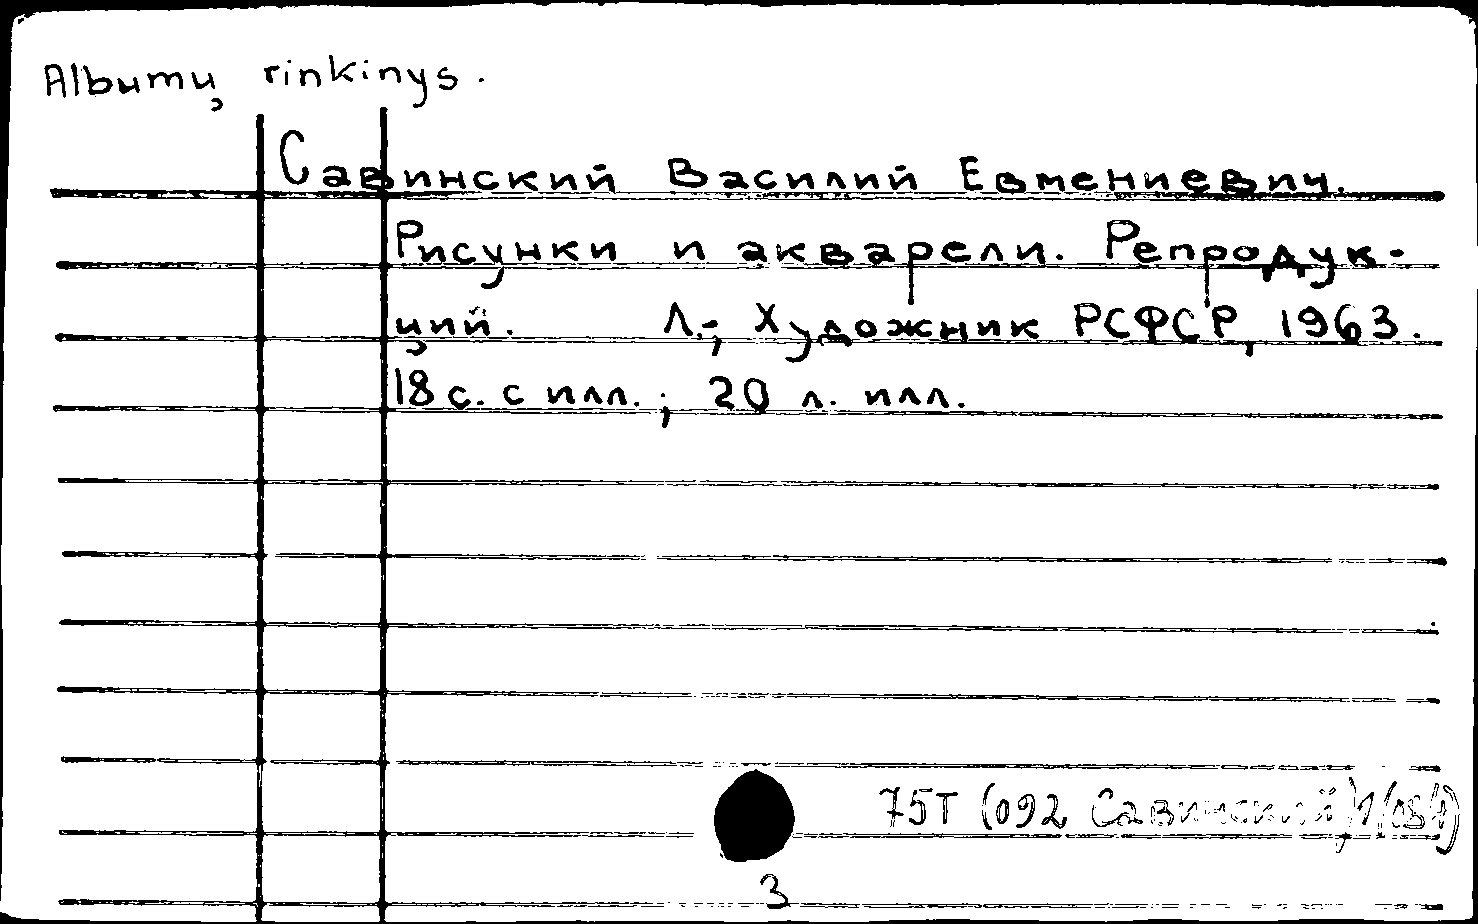 Albumų rinkinys.
Савинский Василий Евмениевич.
Рисунки и акварели. Репродук-
ций. Л., Художник РСФСР, 1963.
18 с. с илл.; 20 л. илл.
75Т (092 Савинский)
3